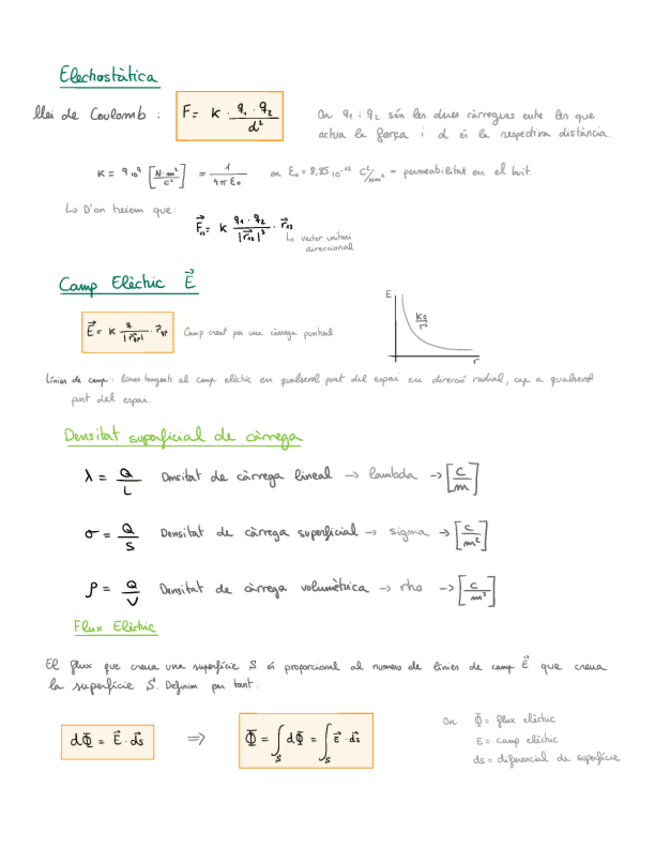 Electrostàtica
Llei de Coulomb : F = K · q₁ · q₂ / d² On q₁ i q₂ són les dues càrregues entre les que
actua la força i d és la respectiva distància.
K = 9 10⁹ [N·m²/C²] = 1/4πε₀ on ε₀ = 8,85 10⁻¹² C²/Nm² = permeabilitat en el buit.
↳ D'on treiem que:
F⃗₁₂ = K q₁ · q₂ / |r⃗₁₂|³ · r⃗₁₂
↳ vector unitari
direccional
Camp Elèctric E⃗
E⃗ = K q / |r⃗qp| · r⃗qp Camp creat per una càrrega puntual
E
Kq/r²
r
Línies de camp : línies tangents al camp elèctric en qualsevol punt del espai en direcció radial, cap a qualsevol
punt del espai.
Densitat superficial de càrrega
λ = Q/L Densitat de càrrega lineal → lambda → [C/m]
σ = Q/S Densitat de càrrega superficial → sigma → [C/m²]
ρ = Q/V Densitat de càrrega volumètrica → rho → [C/m³]
Flux Elèctric
El flux que creua una superfície S és proporcional al numero de línies de camp E⃗ que creua
la superfície S. Definim per tant:
dΦ = E⃗ · ds⃗ ⇒ Φ = ∫S dΦ = ∫S E⃗ · ds⃗
On Φ = flux elèctric
E = camp elèctric
ds = diferencial de superfície